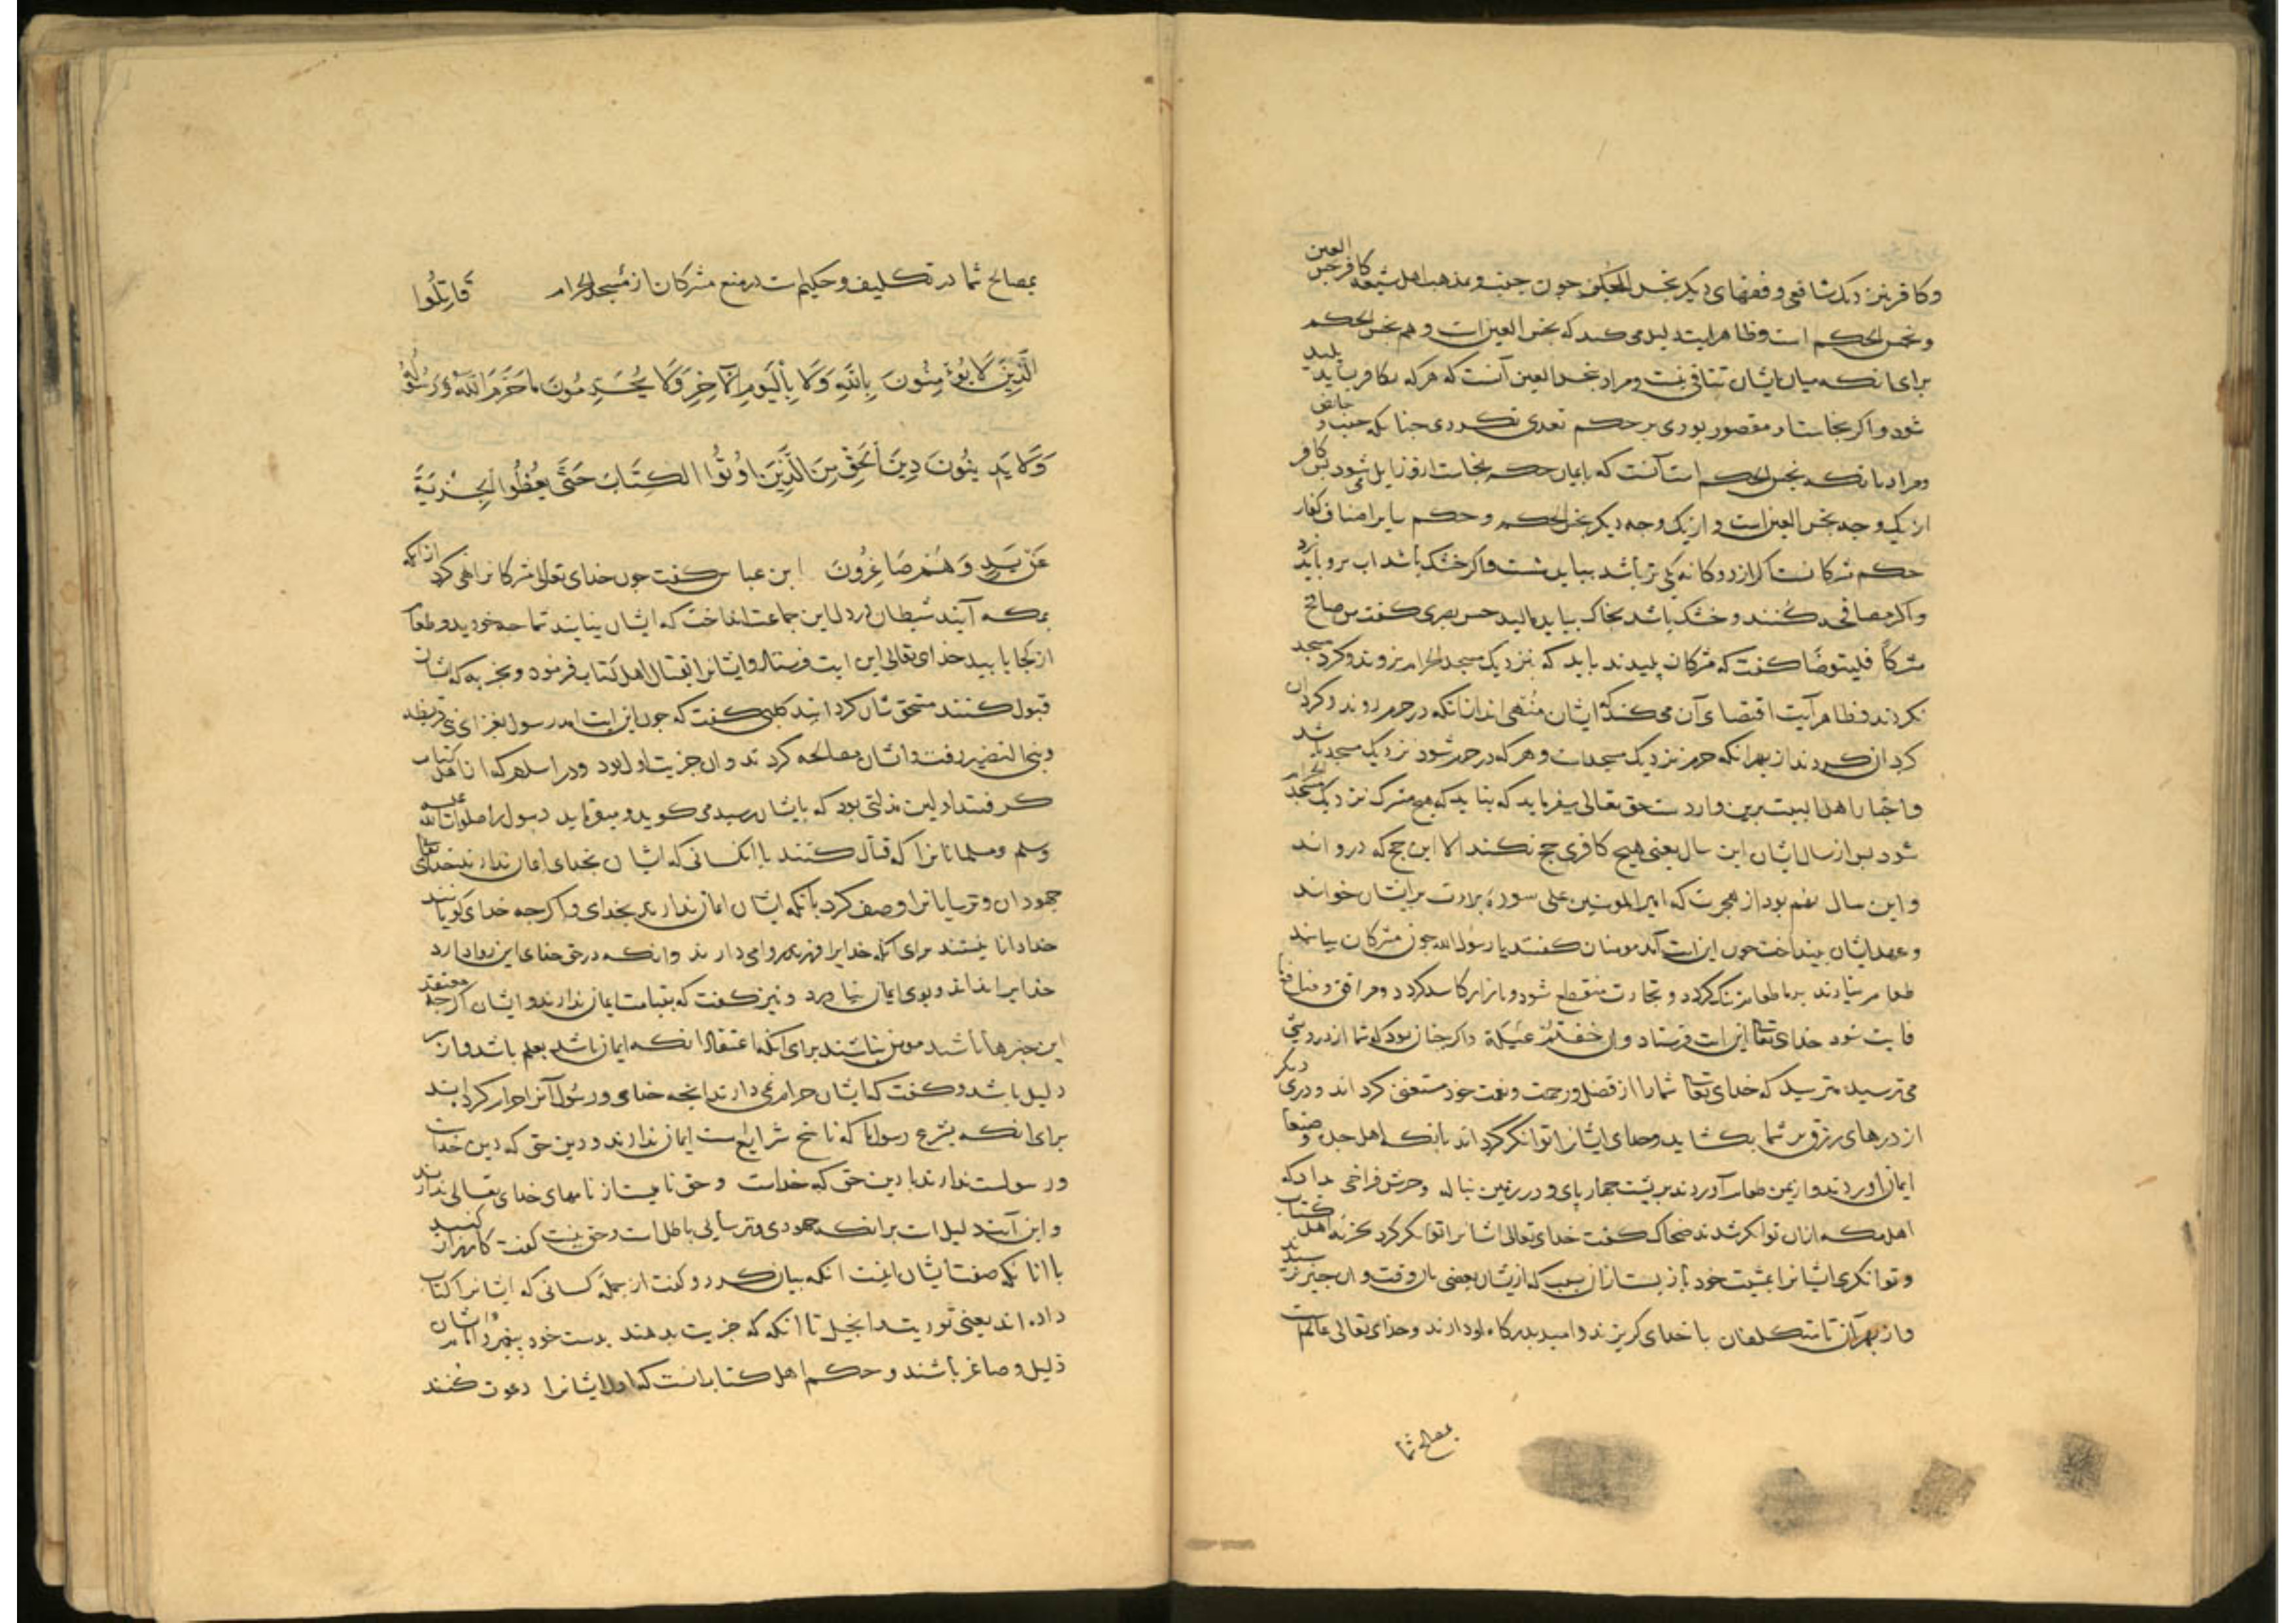 وکافر بنزدیک شافعی وفقهای دیکر نجس الحکم جون جنب و بمذهب اهل شیعه کافر نجس العین
ونجس الحکم است وظاهر ایت دلیل می کند که نجس العین است و هم نجس الحکم
برای انکه میان ایشان تنافی نیست ومراد بنجس العین آنست که هرکه بکافر ساید پلید
شود واکر نجاست او مقصور بودی بر حکم تعدی نکردی جنانکه جنب و حایض
ومراد بانکه نجس الحکم است آنست که بایمان حکم نجاست ازو زایل شود بس کافر
از یک وجه نجس العین است و از یک وجه دیکر نجس الحکم و حکم سایر اصناف کفار
حکم مشرکانست اکر از دوکانه یکی تر باشد بباید شست واکر خشک باشد اب برو باید زد
واکر مصافحه کنند و خشک باشد بخاک بباید مالید حسن بصری کفت من صافح
مشرکاً فلیتوضأ کفت که مشرکان پلیدند باید که نزدیک مسجد الحرام نروند وکرد مسجد
نکردند وظاهر آیت اقتضای آن می کند که ایشان منهی اند ازانکه در حرم روند وکرد ان
کردان کردند از بهر انکه حرم نزدیک مسجدست وهرکه در حرم شود نزدیک مسجد باشد
واخبار اهل البیت برین واردست حق تعالی میفرماید که نباید که هیچ مشرک نزدیک مسجد الحرام
شود بس از سال ایشان این سال یعنی هیچ کافری حج نکند الا این حج که درو اند
و این سال نهم بود از هجرت که امیر المومنین علی سورة برات بر ایشان خواند
و عهد ایشان بینداخت جون این ایت آمد مومنان کفتند یا رسول الله جون مشرکان نیایند
طعام نیارند بر ما طعام تنک کردد و تجارت منقطع شود و بازار کاسد کردد ومرافق و منافع ما
فایت شود خدای تعا این ایت فرستاد وان خفتم عیلة واکر جنان بود که شما از درویشی
می ترسید مترسید که خدای تعا شما را از فضل ورحمت ونعمت خود مستغنی کرداند ودری دیکر
از درهای رزق بر شما بکشاید وخدای ایشانرا توانکر کرداند بانکه اهل جده و صنعا
ایمان اوردند و از یمن طعام آوردند بر پشت جهار پای و در زمین تباله وجرش فراخی داد که
اهل مکه ازان توانکر شدند ضحاک کفت خدای تعالی ایشانرا توانکر کرد بجزیه اهل کتاب
و توانکری ایشانرا بمشیت خود باز بست از سبب که از ایشان بعضی بان وقت وان جیز نرسیدند
واز بهر آن تا متکلفان با خدای کریزند وامید بدرکاه او دارند وخدای تعالی عالم است
بمصالح شما
بمصالح شما در تکلیف و حکیم است در منع مشرکان از مسجد الحرام قَاتِلُوا
الَّذِينَ لَا يُؤْمِنُونَ بِاللَّهِ وَلَا بِالْيَوْمِ الْآخِرِ وَلَا يُحَرِّمُونَ مَا حَرَّمَ اللَّهُ وَرَسُولُهُ
وَلَا يَدِينُونَ دِينَ الْحَقِّ مِنَ الَّذِينَ أُوتُوا الْكِتَابَ حَتَّى يُعْطُوا الْجِزْيَةَ
عَنْ يَدٍ وَهُمْ صَاغِرُونَ ابن عباس کفت جون خدای تعالی مشرکانرا نهی کرد ازانکه
بمکه آیند شیطان در دل این جماعت انداخت که ایشان نیایند شما جه خورید وطعام
از کجا یابید خدای تعالی این ایت فرستاد وایشانرا بقتال اهل کتاب فرمود و بجزیه که ایشان
قبول کنند مستحق شان کردانید کلبی کفت که جون این ایت امد رسول بغزای بنی قریظه
وبنی النضیر رفت وایشان مصالحه کردند و ان جزیت اول بود ودر اسلام که از اهل کتاب
کرفتند اولین مذلتی بود که بایشان رسید می کوید ومیفرماید رسول را صلوات الله علیه
وسلم ومسلمانانرا که قتال کنند با انکسانی که ایشان بخدای ایمان ندارند خدای تعا
جهودان و ترسایانرا وصف کرد بانکه ایشان ایمان ندارند بخدای واکرجه خدای کویانند
خدا دانا نیستند برای انکه خدایرا فرزند روا می دارند وانکه در حق خدای این روا دارد
خدایرا نداند و بوی ایمان نیاورد ونیز کفت که بقیامت ایمان ندارند وایشان اکرجه معتقد
این جیزها باشند مومن نباشند برای انکه اعتقاد انکه ایمان باشد بعلم باشد واز
دلیل باشد وکفت که ایشان حرام نمی دارند انجه خدای ورسول آنرا حرام کردانید
برای انکه بشرع رسول ما که ناسخ شرایع است ایمان ندارند ودین حق که دین خداست
ورسولست ندارند یا دین حق که خداست وحق نامیست از نامهای خدای تعالی ندارند
و این آیت دلیل است برانکه جهودی وترسایی باطل است وحق نیست کفت کارزار کنید
با انانکه صفت ایشان اینست انکه بیان کرد وکفت از جملۀ کسانی که ایشانرا کتاب
داده اند یعنی توریت وانجیل تا انکه که جزیت بدهند بدست خود
ذلیل وصاغر باشند و حکم اهل کتاب انست که اول ایشانرا دعوت کنند